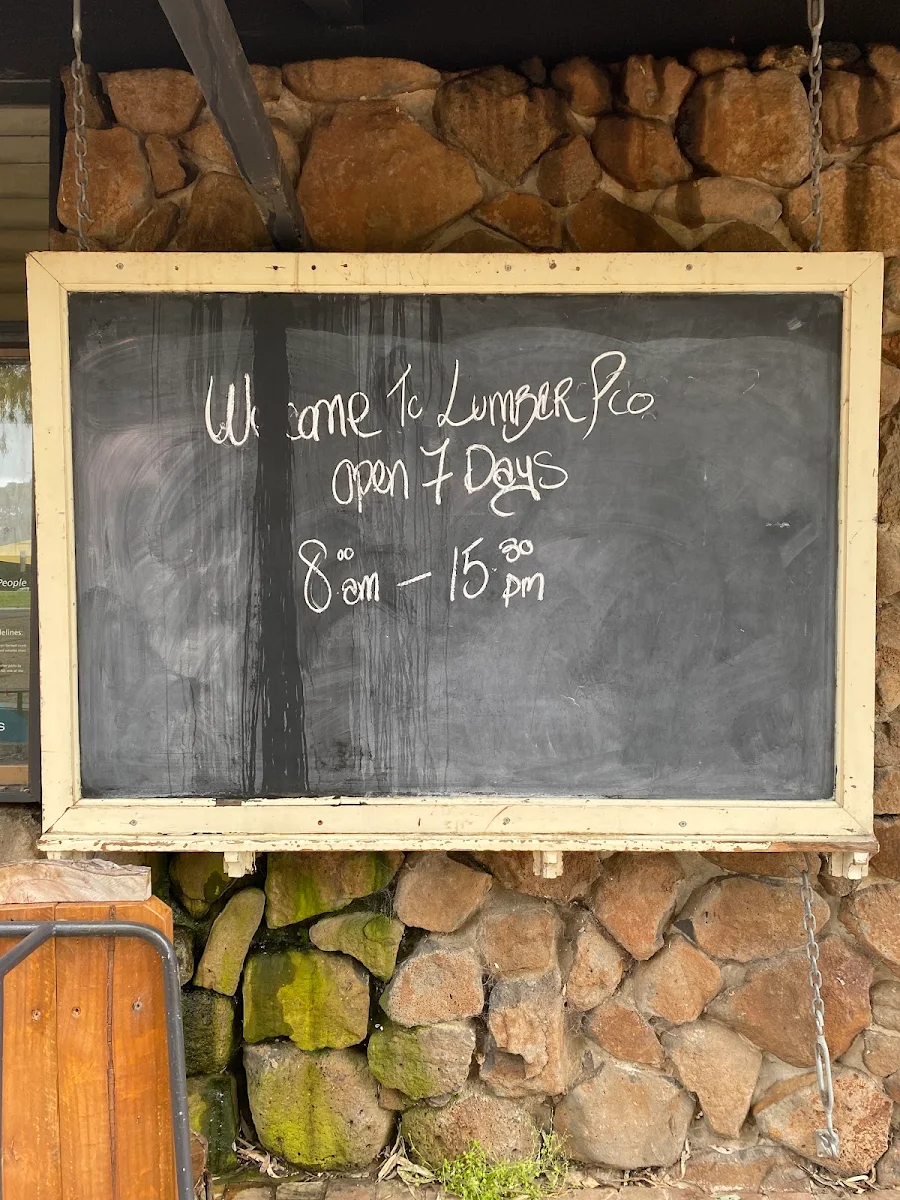 Welcome To Lumber Pco
open 7 Days
8.00 am – 15.30 pm
People
delines:
s